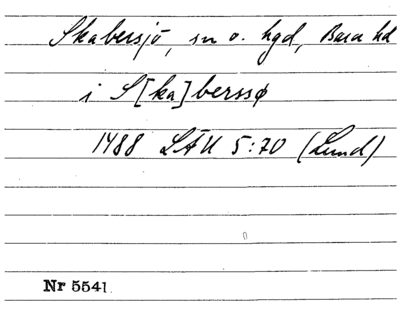 Skabersjö, sn o. hgd, Bara hd
i S[ka]berssø
1488 LÄU 5:70 (Lund)
Nr 5541.